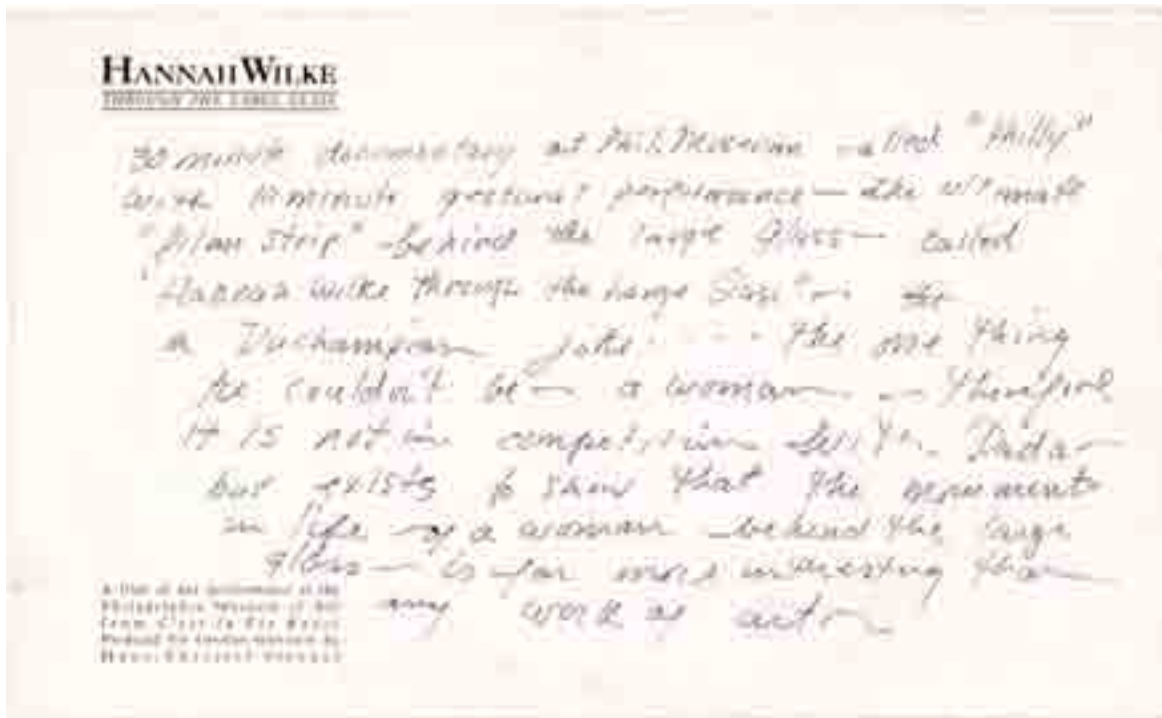 HANNAH WILKE
THROUGH THE LARGE GLASS
30 minute documentary at Phil. Museum called "Philly"
with 10 minute gestural performance — the ultimate
"film strip" - behind the large Glass — called
"Hannah Wilke Through the Large Glass" — 
a Duchampian joke - - - the one thing
he couldn't be — a woman — therefore
it is not in competition with Dada —
but exists to show that the
in life of a woman — behind the large
glass — is far more interesting than
any work of art —
A film of her performance at the
Philadelphia Museum of Art
from C'est la Vie Rrose
Produced for German television by
Hans-Christof Stenzel